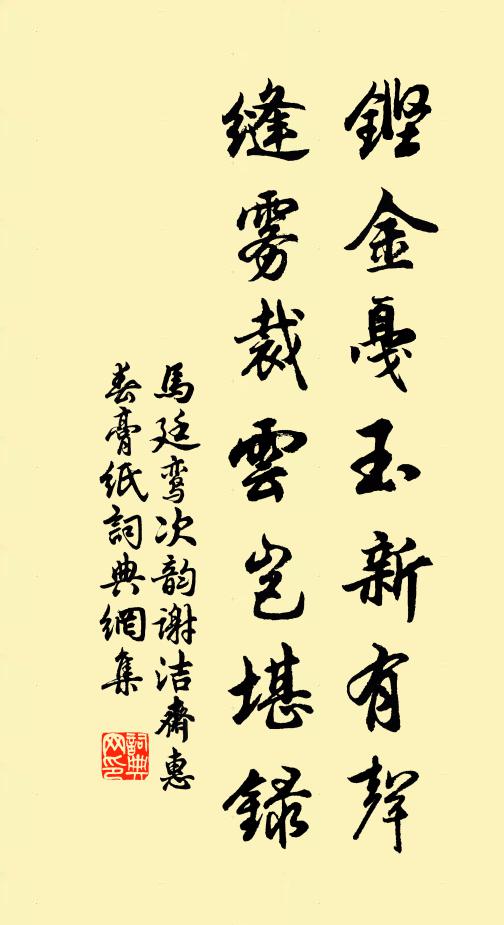 鏗金戛玉新有聲
縫霧裁雲豈堪錄
馬廷鸞次韵謝洁齋惠
春膏紙詞典網集
詞典網印